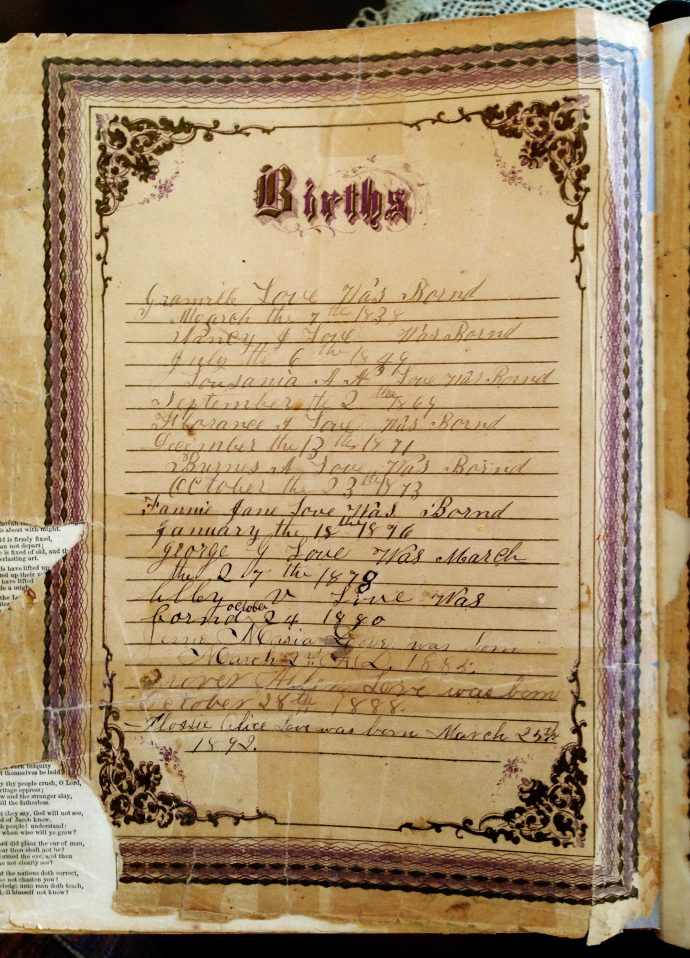 Births
Granville Love Was Bornd
March the 7th 1838
Nancy J Love Was Bornd
July the 6th 1849
A A Love Was Bornd
September the 2the 1869
Florance I Love Was Bornd
December the 13th 1871
Burnes A Love Was Bornd
October the 23th 1873
Fannie Jane Love Was Bornd
January the 18the 1876
George G Love Was March
the 27the 1878
V Love Was
bornd october 24 1880
Maria Love was born
March 2nd A.D. 1885
Grover Love was born
October 28th 1888
Flossie Alice Love was born March 25th
1892.
is about with might.
ld is firmly fixed,
an not depart;
e is fixed of old, and th
erlasting art.
ds have lifted up
ted up their v
have lifted
de a migh
the Lo
ter
work iniquity
t themselves be hold
y thy people crush, O Lord,
ritage oppress;
w and the stranger slay,
ill the fatherless.
t they say, God will not see,
d of Jacob know.
h people! understand:
when wise will ye grow?
rd did plant the ear of man,
ear then shall not he?
ormed the eye, and then
e not clearly see?
t the nations doth correct,
e not chasten you?
wledge unto man doth teach,
ll himself not know?